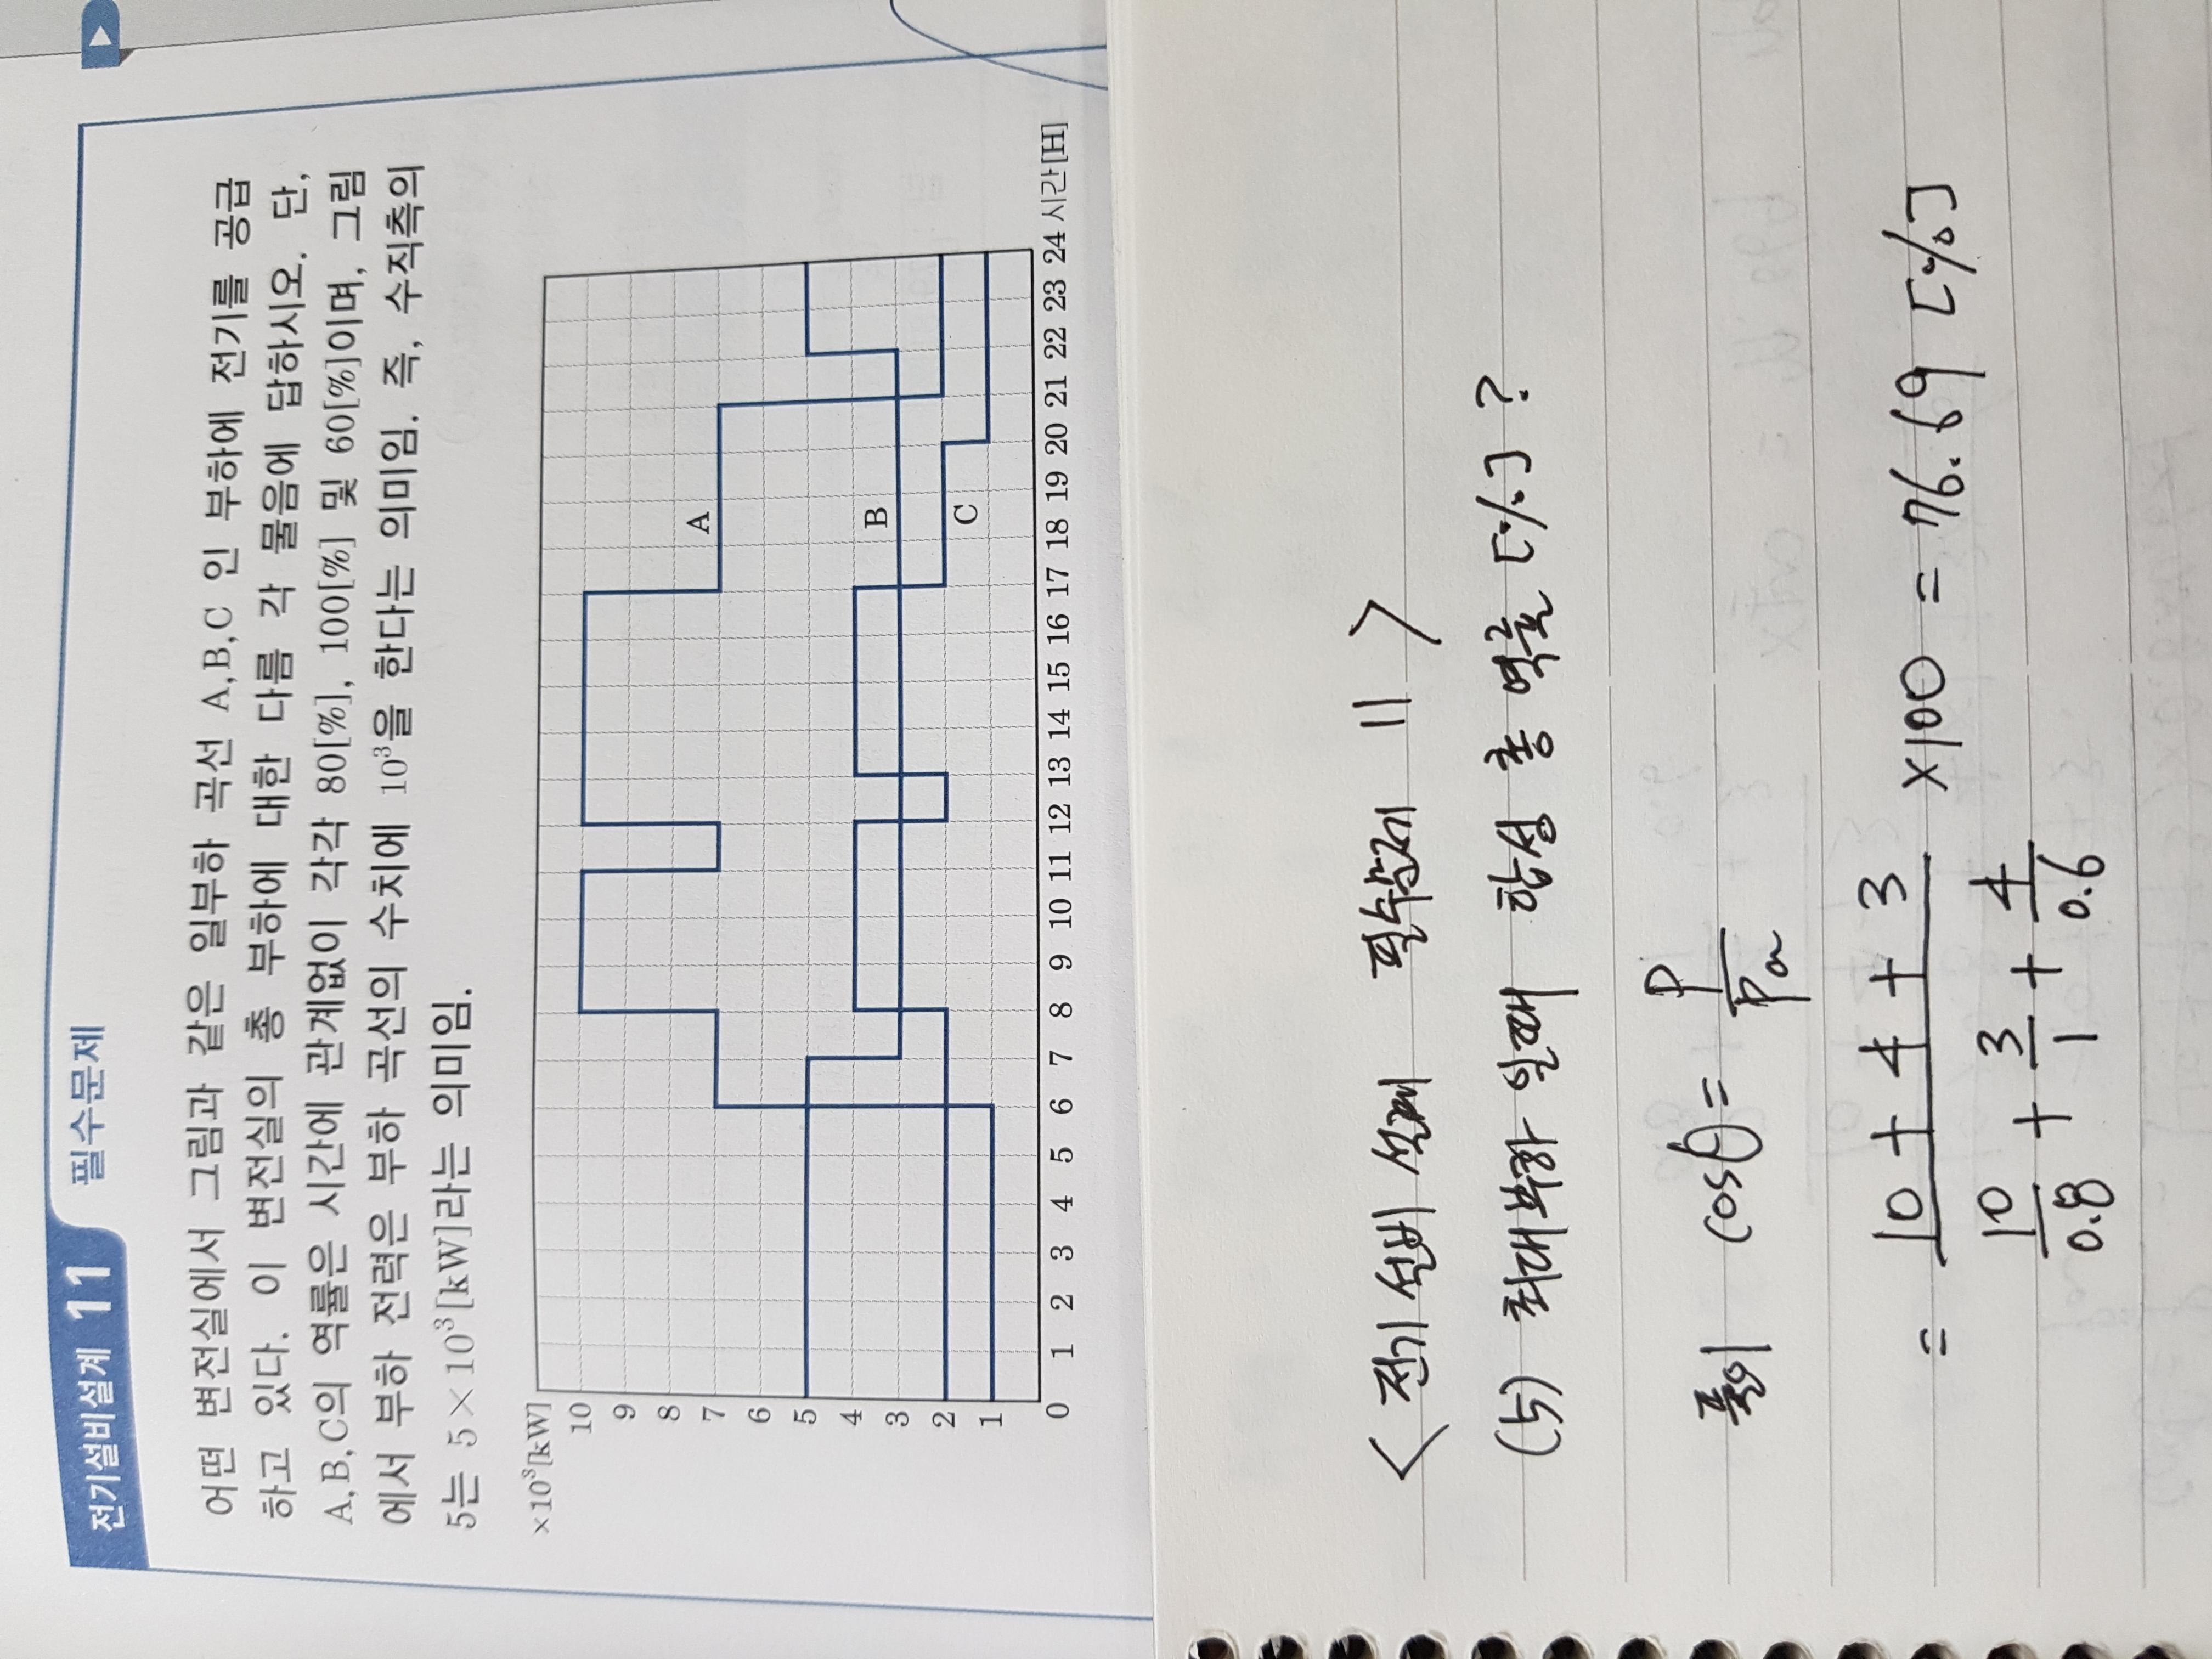 전기설비설계 11 필수문제
어떤 변전실에서 그림과 같은 일부하 곡선 A,B,C 인 부하에 전기를 공급
하고 있다. 이 변전실의 총 부하에 대한 다름 각 물음에 답하시오. 단,
A,B,C의 역률은 시간에 관계없이 각각 80[%], 100[%] 및 60[%]이며, 그림
에서 부하 전력은 부하 곡선의 수치에 10³을 한다는 의미임. 즉, 수직측의
5는 5×10³[kW]라는 의미임.
×10³[kW]
10
9
8
7
6
5
4
3
2
1
A
B
C
0 1 2 3 4 5 6 7 8 9 10 11 12 13 14 15 16 17 18 19 20 21 22 23 24 시간[H]
< 전기설비 설계 필수문제 11 >
(5) 최대부하 일때 합성 총 역률[%]?
풀이 cosθ = P/Pa
= (10 + 4 + 3)/(10/0.8 + 3/1 + 4/0.6) ×100 = 76.69 [%]